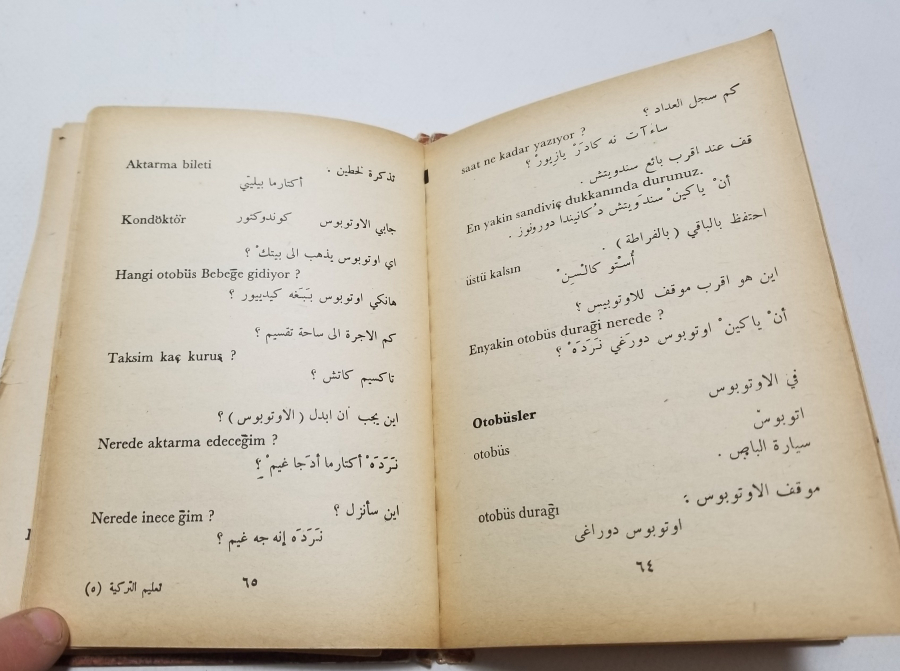 كم سجل العداد ؟
saat ne kadar yazıyor ?
ساءآت نه كادَرْ يازيورْ ؟
قف عند اقرب بائع سندويتش .
En yakin sandiviç dukkanında durunuz.
أنْ ياكينْ سندَويتش دُكانيندا دورونوز .
احتفظ بالباقي ( بالفراطة ) .
üstü kalsın
أُستْو كالْسينْ
اين هو اقرب موقف للاوتوبيس ؟
Enyakin otobüs durağı nerede ?
أنْ ياكينْ اوتوبوس دورَغي نَرَدَهْ ؟
في الاوتوبوس
Otobüsler
اتوبوسْ
otobüs
سيارة الباص .
موقف الاوتوبوس :
otobüs durağı
اوتوبوس دوراغى
٦٤
تذكرة لخطين .
Aktarma bileti
أكتارما بيليتّي
جابي الاوتوبوس
كوندوكتور
Kondöktör
اي اوتوبوس يذهب الى بيتكْ ؟
Hangi otobüs Bebeğe gidiyor ?
هانكي اوتوبوس بَبَغه كيدييور ؟
كم الاجرة الى ساحة تقسيم ؟
Taksim kaç kuruş ?
تاكسيم كاتش ؟
اين يجب ان ابدل ( الاوتوبوس ) ؟
Nerede aktarma edeceğim ?
نَرَدَهْ أكتارما أدَجا غيمْ ؟
اين سأنزل ؟
Nerede inece ğim ?
نَرَدَه إنه جه غيم ؟
٦٥
تعليم التركية (٥)